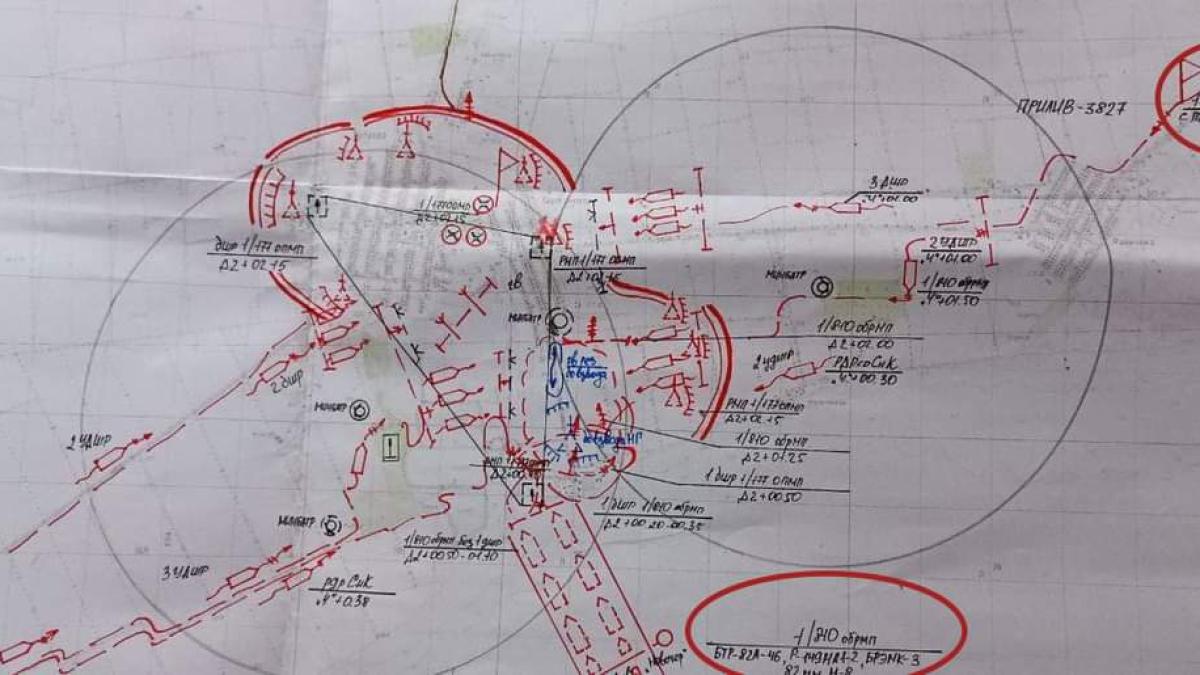 ПРИЛИВ-3827
3 ДШР
"Ч"+01.00
1/177 ОПМП
Д2+02.15
дшр 1/177 опмп
Д2+02.15
РМП 1/177 ОПМП
Д2+02.15
2 УДШР
"Ч"+01.00
1/810 обрмп
"Ч"+01.50
МИНБАТР
1/810 обрмп
Д2+02.00
МИНБАТР
2 УДШР
РДР СиК
"Ч"+00.30
2 дшр
РМП 1/177 ОПМП
Д2+02.15
МИНБАТР
1/810 обрмп
Д2+01.25
2 УДШР
1 дшр 1/177 ОПМП
Д2+00.50
1 ДШР 1/810 обрмп
Д2+00.20-00.35
МИНБАТР
1/810 обрмп без 1 дшр
Д2+00.50-01.10
3 УДШР
рдр СиК
"Ч"+0.38
1/810 обрмп
БТР-82А-46, Р-149МА1-2, БРЭМК-3
82 мм М-8